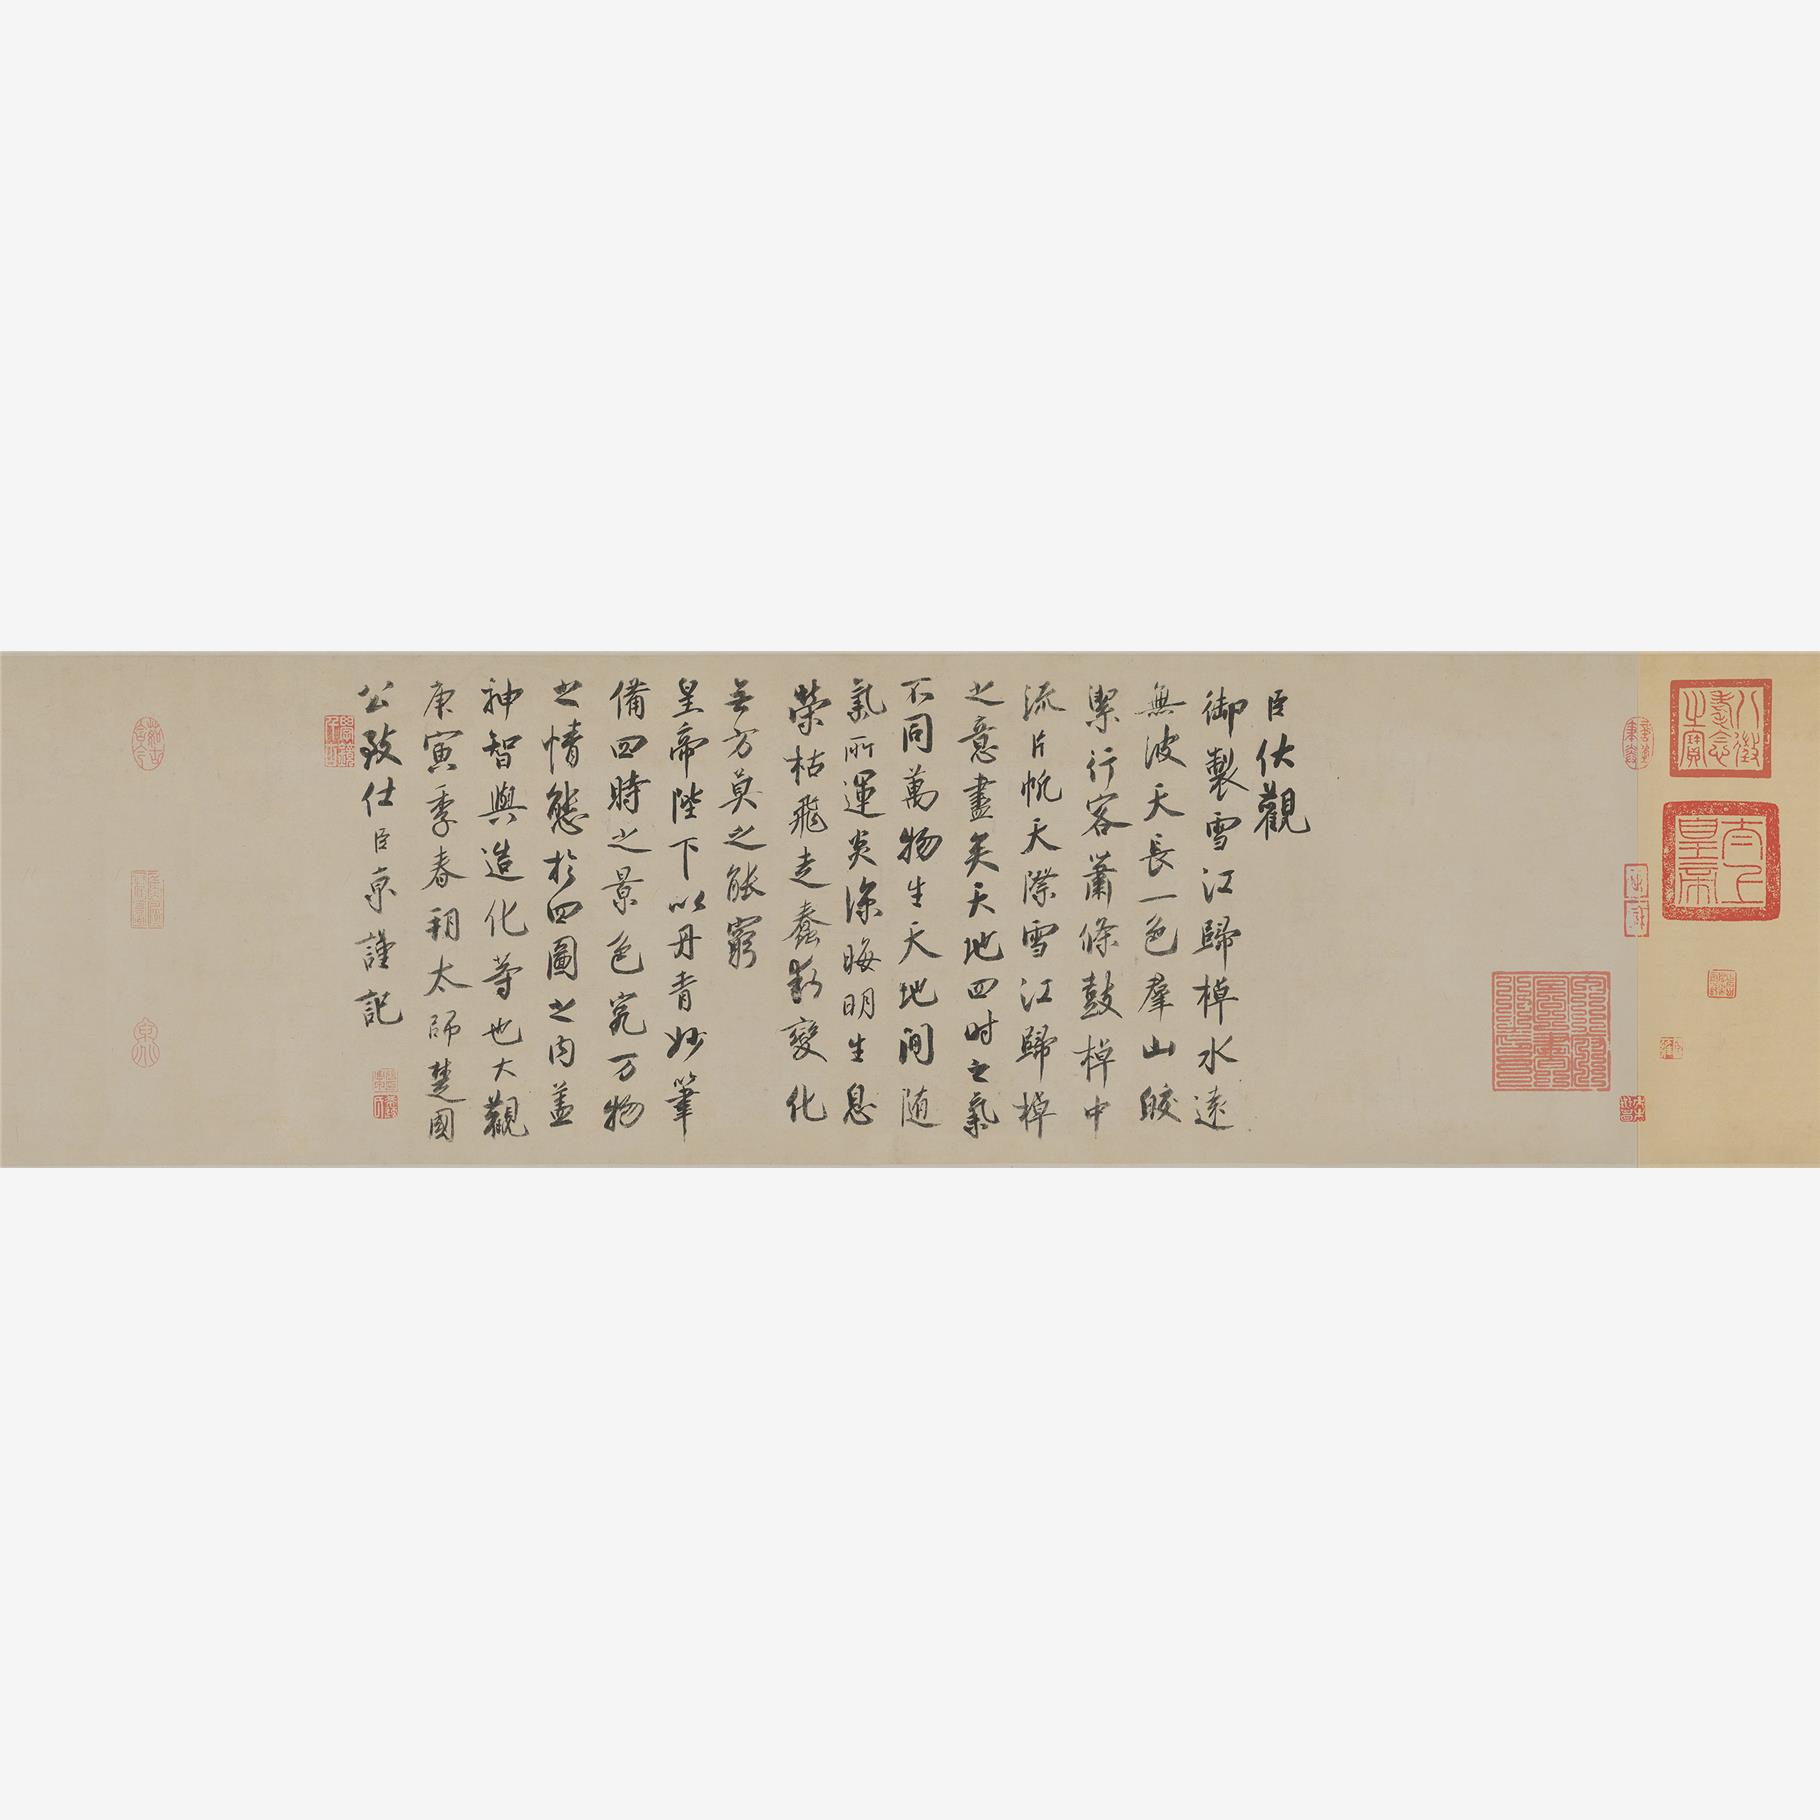 八徵耄念之寶
太上皇帝
臣伏觀
御製雪江歸棹水遠
無波天長一色羣山皎
潔行客蕭條鼓棹中
流片帆天際雪江歸棹
之意盡矣天地四时之氣
不同萬物生天地間随
氣所運炎涼晦明生息
榮枯飛走蠢動變化
無方莫之能窮
皇帝陛下以丹青妙筆
備四時之景色究万物
之情態於四圖之内蓋
神智與造化等也大觀
庚寅季春朔太師楚國
公致仕臣京謹記